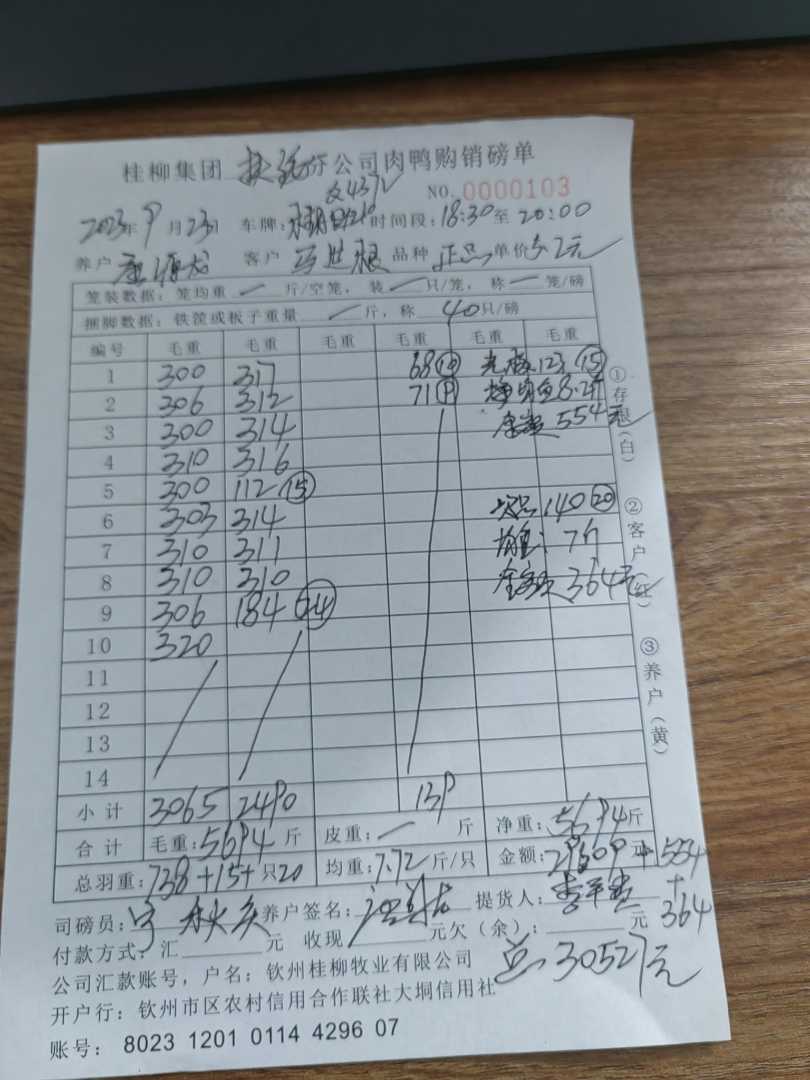 桂柳集团 分公司肉鸭购销磅单
NO. 0000103
2023年9月23日 车牌: 时间段:18:30至20:00
养户 客户 马世根 品种 正品 单价5.2元
笼装数据:笼均重 一 斤/空笼,装 一 只/笼,称 一 笼/磅
捆脚数据:铁篼或板子重量 一 斤,称 40只/磅
编号 毛重 毛重 毛重 毛重 毛重 毛重
1 300 317 68 123 (15)
2 306 312 71 8.2斤
3 300 314 554元
4 310 316
5 300 112 (15)
6 303 314 次品 140 (20)
7 310 311 均重: 7斤
8 310 310 金额 364元
9 306 184 (24)
10 320
11
12
13
14
小计 3065 2490 139
合计 毛重:5694斤 皮重:一 斤 净重:5694斤
总羽重:738+15+只20 均重:7.72斤/只 金额:29609元+554
+364
司磅员: 养户签名: 提货人:
付款方式:汇 元 收现 元欠(余): 元
总30527元
公司汇款账号,户名:钦州桂柳牧业有限公司
开户行:钦州市区农村信用合作联社大垌信用社
账号: 8023 1201 0114 4296 07
①存根(白)
②客户(红)
③养户(黄)